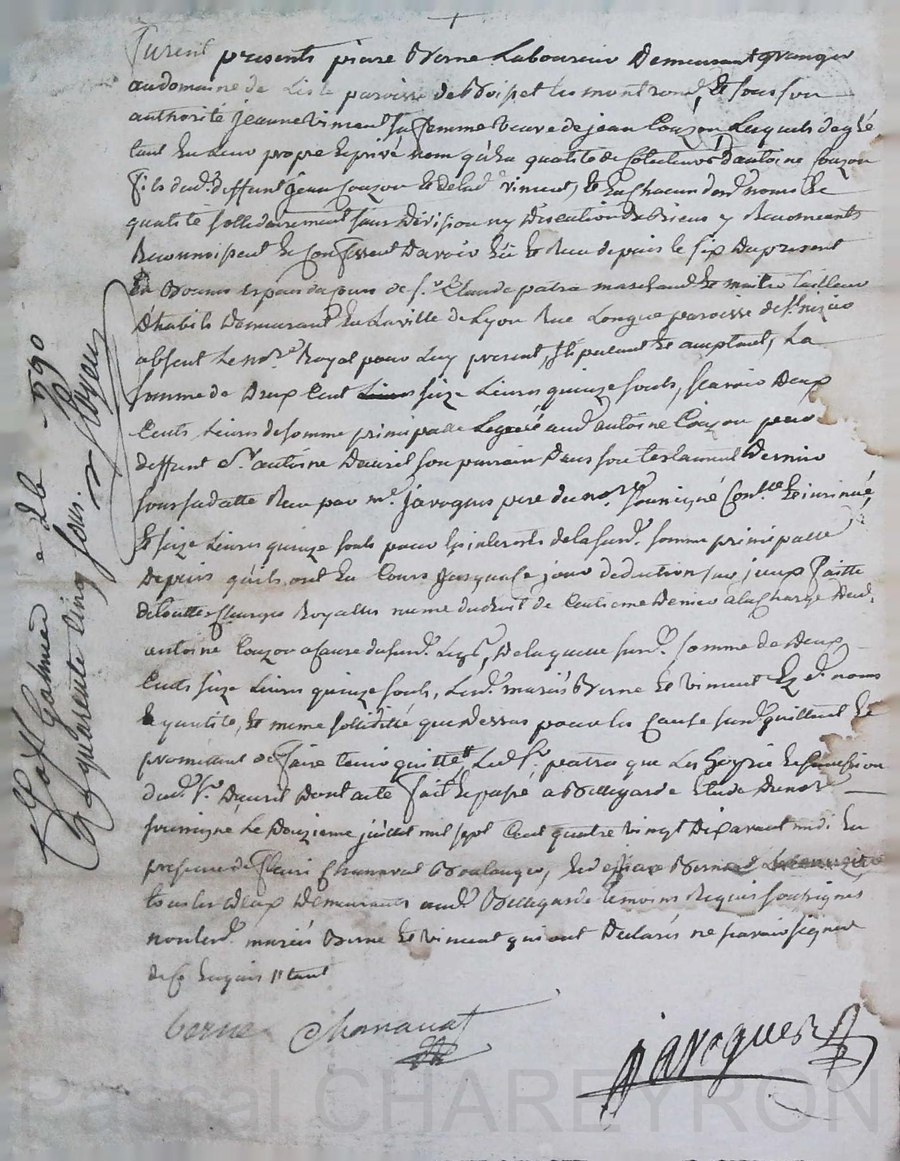 furent presents pierre Verne Laboureur Demeurant granger
au domaine de Lisle paroisse de Boisset les montrond, et sous son
authorité jeanne vincent sa femme veuve de jean Couzon Lesquels de gré
tant En Leur propre et privé nom qu'En qualité de d'antoine Couzon
fils dud. deffunt jean Couzon et de lad. vincent, et En chacun desd. noms et
qualité sollidairement sans Division ny Discution De Biens y Renonceants
Reconnoissent et Confessent Davoir Eû et Reçu depuis le six Du present
En Bonnes Especes de Cours de s.r Claude patra marchand et maitre tailleur
Dhabits Demeurant En La ville de Lyon Rue Longue paroisse de st. nizier
absent Le no.re Royal pour Luy present, stipulant et acceptant, La
somme de Deux Cent seize Livres quinze sols, scavoir Deux
Cents Livres de somme principalle Legué aud. antoine Couzon par
deffunt S.r antoine Dauril son parrain Dans son testament Dernier
sous sa datte Reçu par m.e javogues pere du no.re soussigné Con.llé et insinué,
et seize Livres quinze sols pour les interets de la sus.d. somme principalle
Depuis qu'ils ont Eu Cours jusqua ce jour deduction sur jceux faitte
de touttes Charges Royalles meme du droit de Centieme Denier a la Charge Dud.
antoine Couzon a Cause du susd. Legs, De laquelle susd. somme de Deux
Cents seize Livres quinze sols, Lesd. mariés Verne et vincent Ez d. noms
et qualité, et meme sollidité que dessus pour les Cause susd. quittent et
promettent de faire tenir quitte Led. S.r patra que Les hoyrie et succession
dud. S.r Dauril Dont acte fait et passé a Bellegarde Etude Du no.re
soussigné Le Douzieme juillet mil sept Cent quatre vingt Dix avant midi En
presence de fleuri Chanavat Boulanger, et de Verne
tous les Deux Demeurants aud. Bellegarde temoins Requis soussignés
non lesd. mariés Verne et vincent qui ont Declarés ne scavoir signer
de ce Enquis
verne Chanavat
javogues
a St Galmier Le 26 790
R quarente Cinq sous.